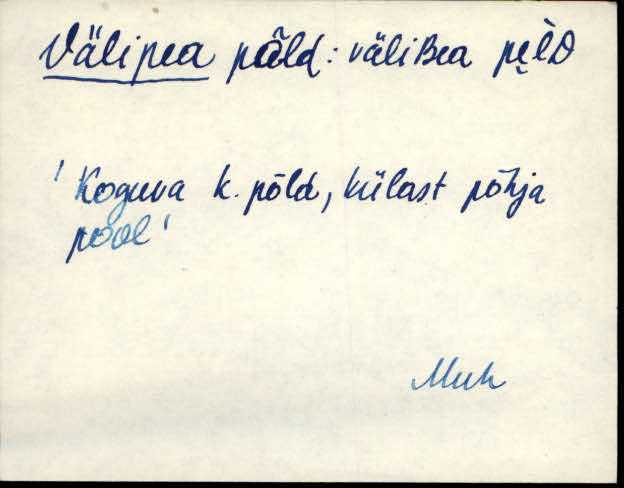 Välipea põld: väliBea pe̬l̀D
'Koguva k. põld, külast põhja
pool'
Muh